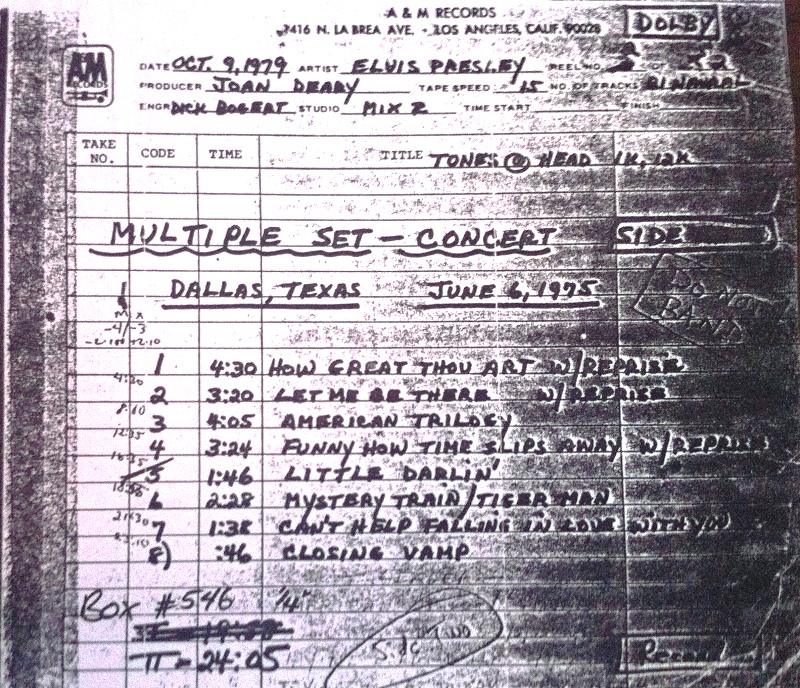 A & M RECORDS
1416 N. LA BREA AVE. - LOS ANGELES, CALIF. 90028 DOLBY
A&M RECORDS
DATE OCT. 9, 1979 ARTIST ELVIS PRESLEY REEL NO. 2 OF X2
PRODUCER JOAN DEARY TAPE SPEED 15 NO. OF TRACKS BINAURAL
ENGR DICK BOGERT STUDIO MIX 2 TIME START FINISH
TAKE NO. CODE TIME TITLE TONES @ HEAD 1K, 12K
MULTIPLE SET - CONCERT SIDE
1 DALLAS, TEXAS JUNE 6, 1975
DO NOT BAND
M X
-4/-3
1 4:30 HOW GREAT THOU ART W/REPRISE
4:30
2 3:20 LET ME BE THERE W/REPRISE
8:10
3 4:05 AMERICAN TRILOGY
12:35
4 3:24 FUNNY HOW TIME SLIPS AWAY W/REPRISE
16:35
5 1:46 LITTLE DARLIN'
6 2:28 MYSTERY TRAIN/TIGER MAN
21:30
7 1:38 CAN'T HELP FALLING IN LOVE WITH YOU
8) :46 CLOSING VAMP
BOX #546 "/4"
II - 24:05